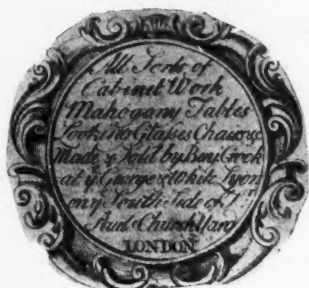 All Sorts of
Cabinet Work
Mahogany Tables
Looking Glasses Chairs &c
Made & Sold by Benj. Crook
at ye George & White Lyon
on ye South Side of St
Pauls Church Yard
LONDON